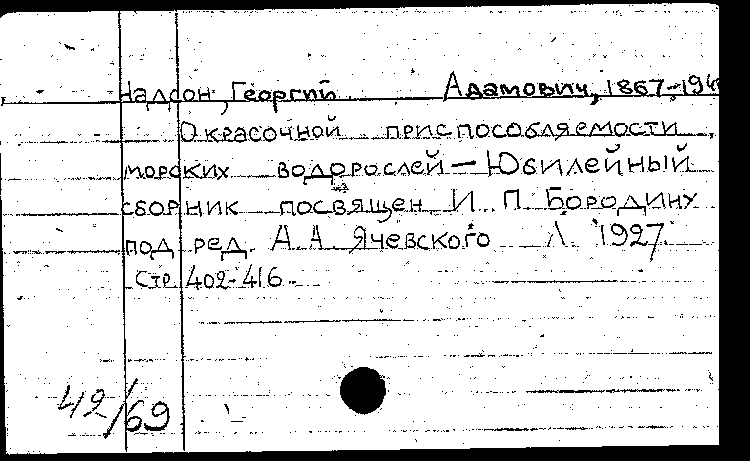 Надсон, Георгий Адамович, 1867-194
О красочной приспособляемости
морских водорослей — Юбилейный
сборник посвящен И. П. Бородину
под ред. А. А. Ячевского Л. 1927.
Стр 402-416.
42/69